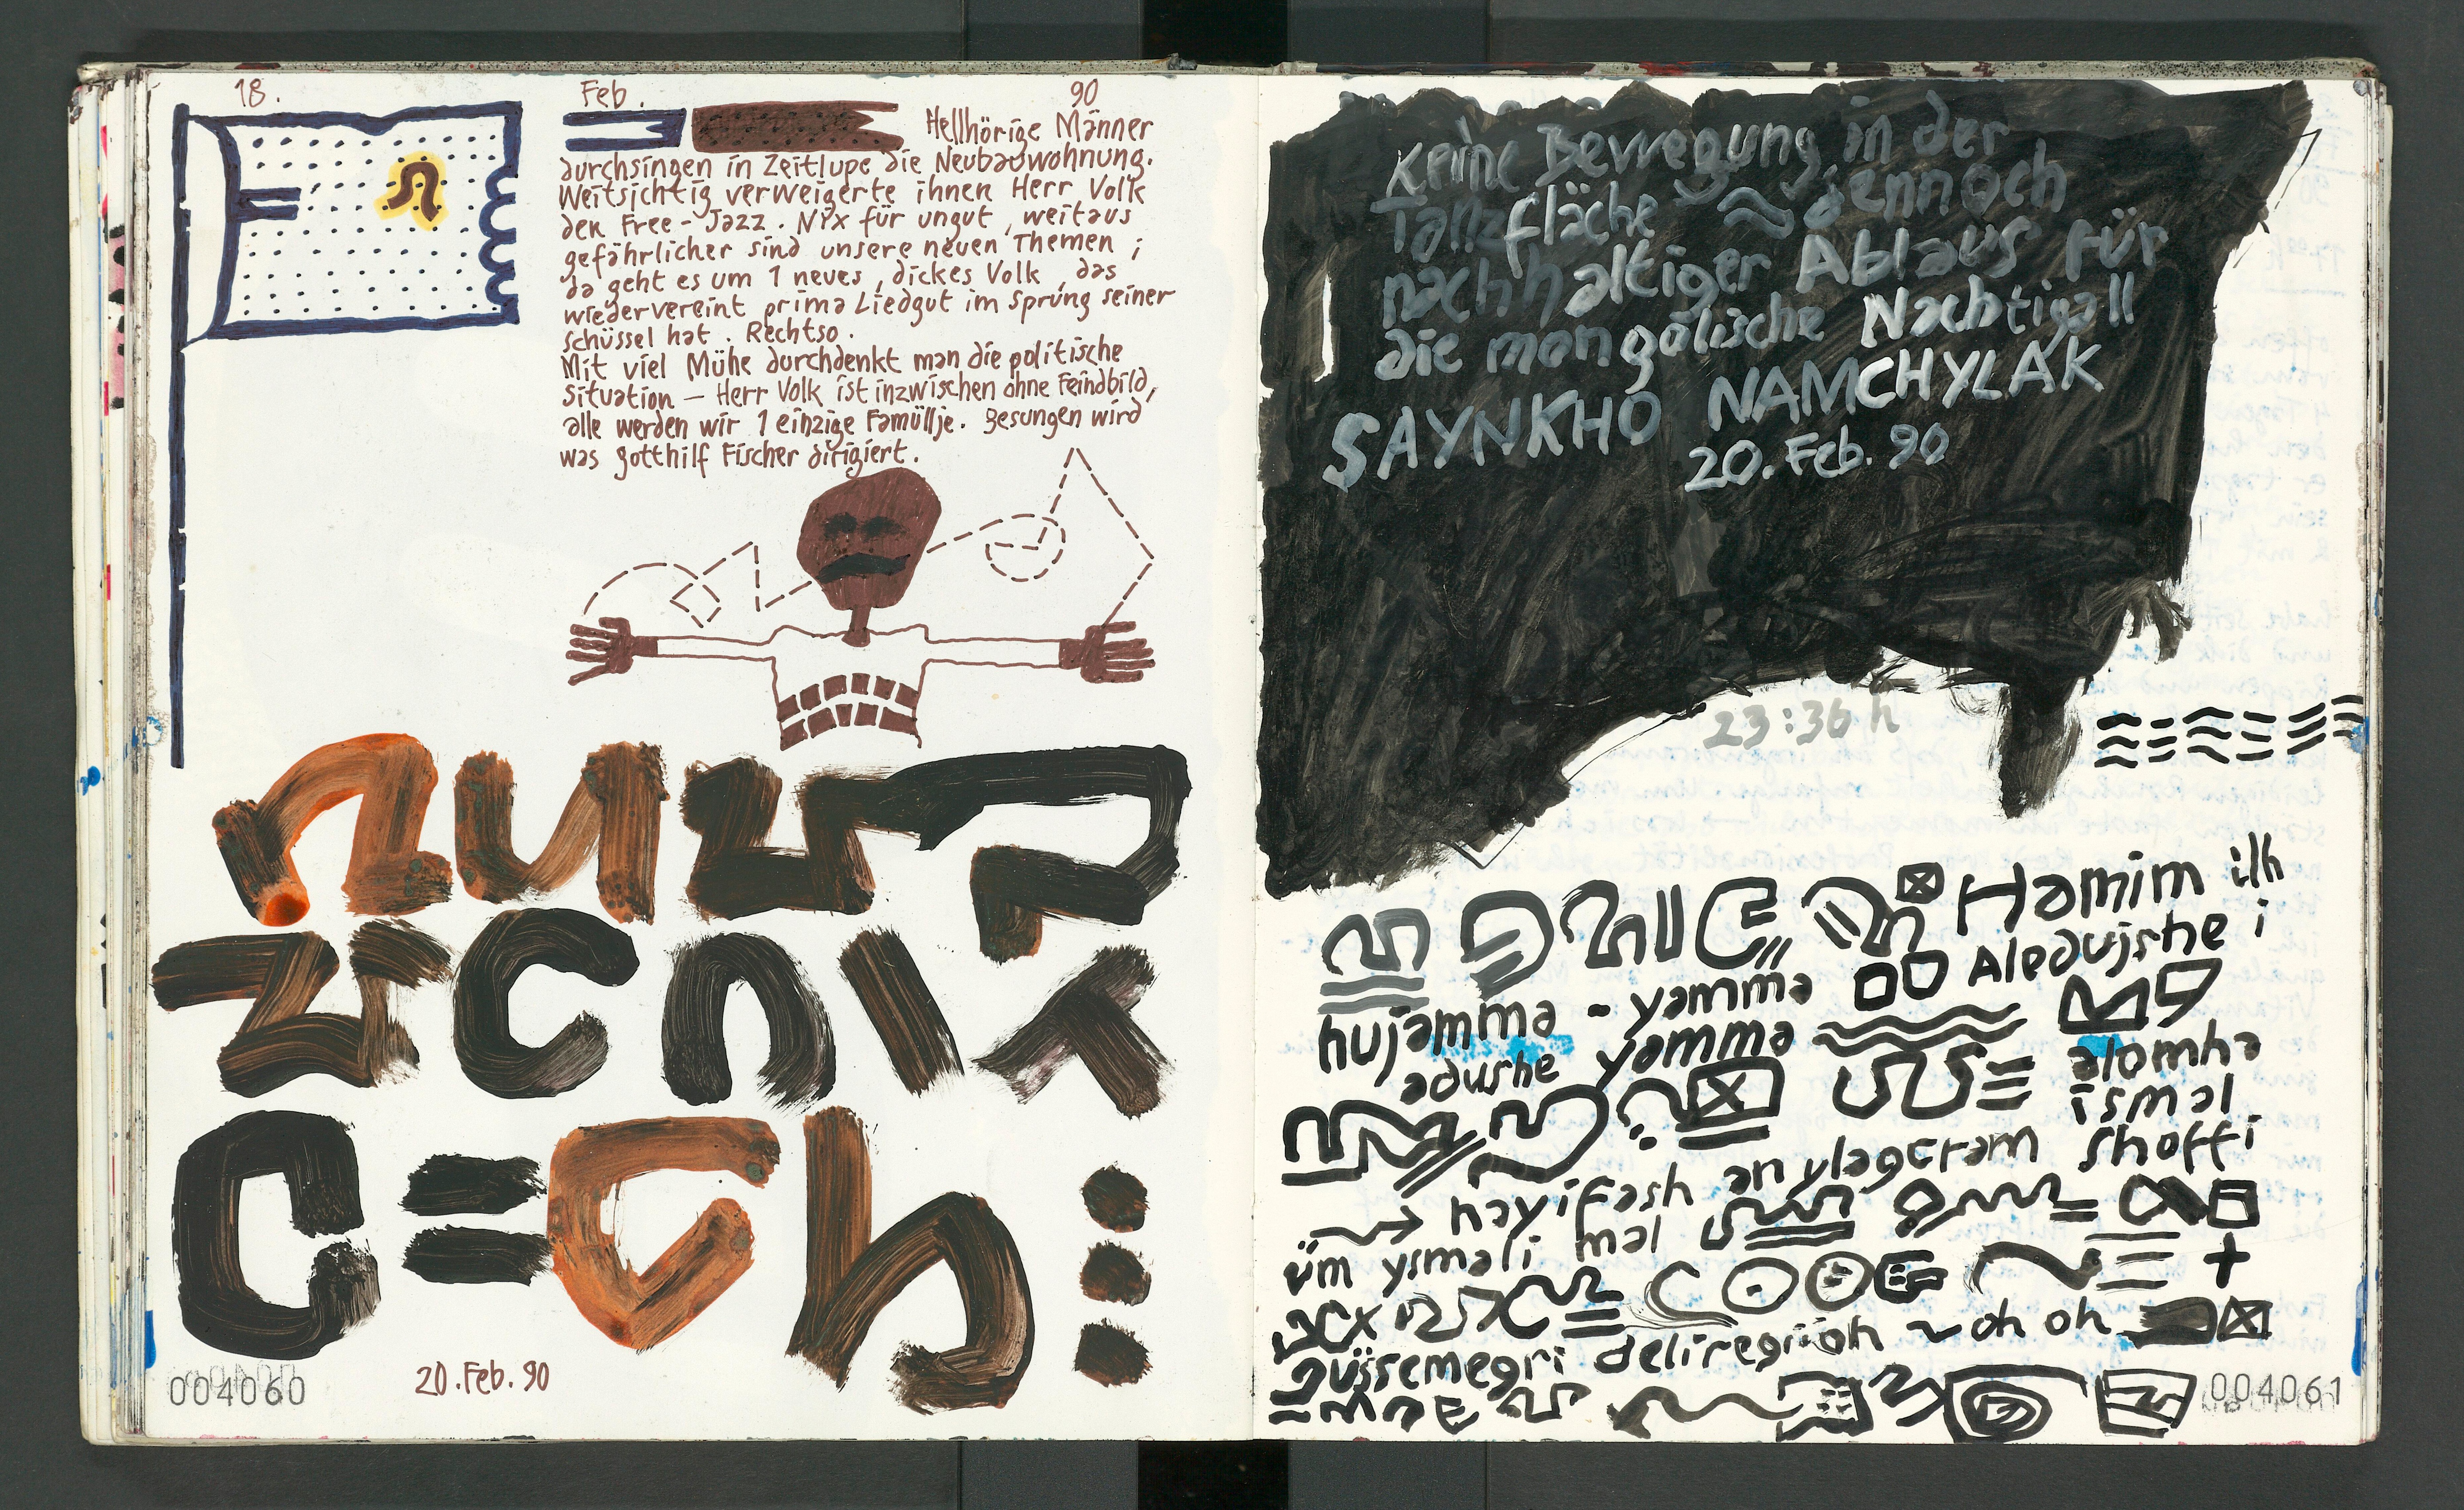 18. Feb. 90
Hellhörige Männer
durchsingen in Zeitlupe die Neubauwohnung.
Weitsichtig verweigerte ihnen Herr Volk
den Free-Jazz. Nix für ungut, weitaus
gefährlicher sind unsere neuen Themen;
da geht es um 1 neues, dickes Volk, das
wiedervereint prima Liedgut im Sprung seiner
Schüssel hat. Rechtso.
Mit viel Mühe durchdenkt man die politische
Situation — Herr Volk ist inzwischen ohne Feindbild,
alle werden wir 1 einzige Famüllje. Besungen wird
was Gotthilf Fischer dirigiert.
004060
20. Feb. 90
Keine Bewegung in der
Tanzfläche ≈ dennoch
nachhaltiger Ablaus für
die mongolische Nachtigall
SAYNKHO NAMCHYLAK
20. Feb. 90
23:36 h
Hamim ilh
Aleaujshe i
hujamma - yamma
adushe yamma
alomha
ismal
hayifash anylagtram shoffi
üm ysmali mal
güssemegri deliregiioh ~ oh oh
004061